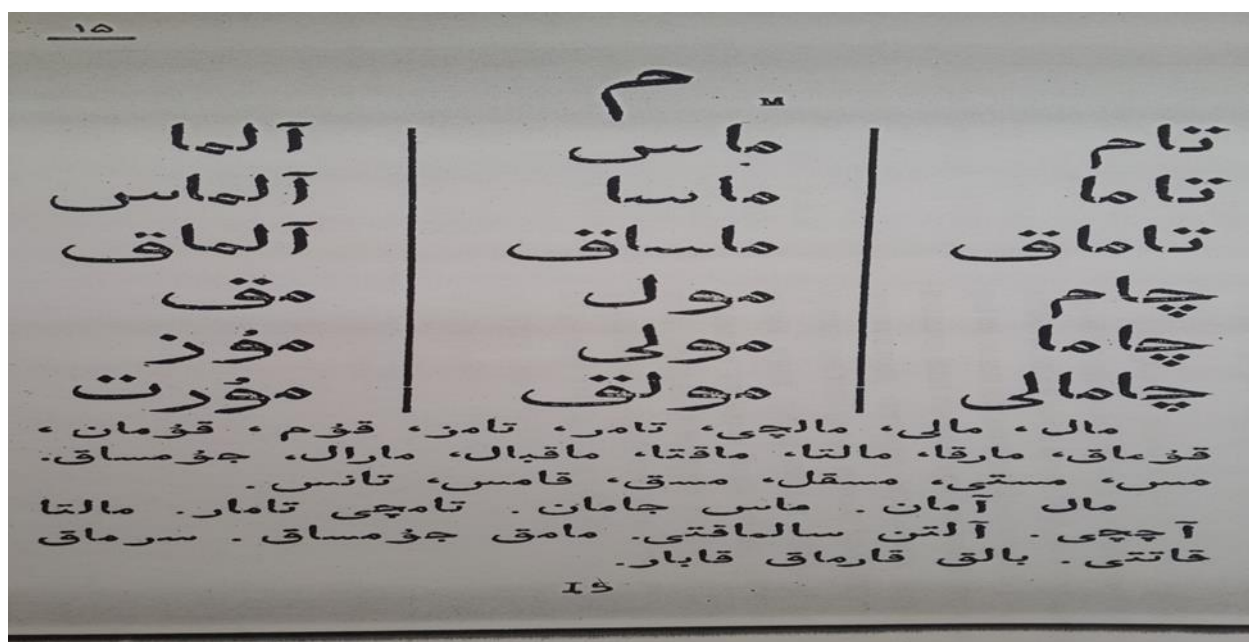 ۱۵
م
м
تام
تاما
تاماق
چام
چاما
چامالى
ماس
ماسا
ماساق
مول
مولى
مولق
آلما
آلماس
آلماق
مق
مۇز
مۇرت
مال، مالى، مالچى، تامر، تامز، قۇم، قۇمان،
قۇماق، مارقا، مالتا، ماقتا، ماقبال، مارال، جۇمساق.
مس، مستى، مسقل، مسق، قامس، تانس.
مال آمان. ماس جامان. تامچى تامار. مالتا
آچچى. آلتن سالماقتى. مامق جۇمساق. سرماق
قاتتى. بالق قارماق قابار.
I5